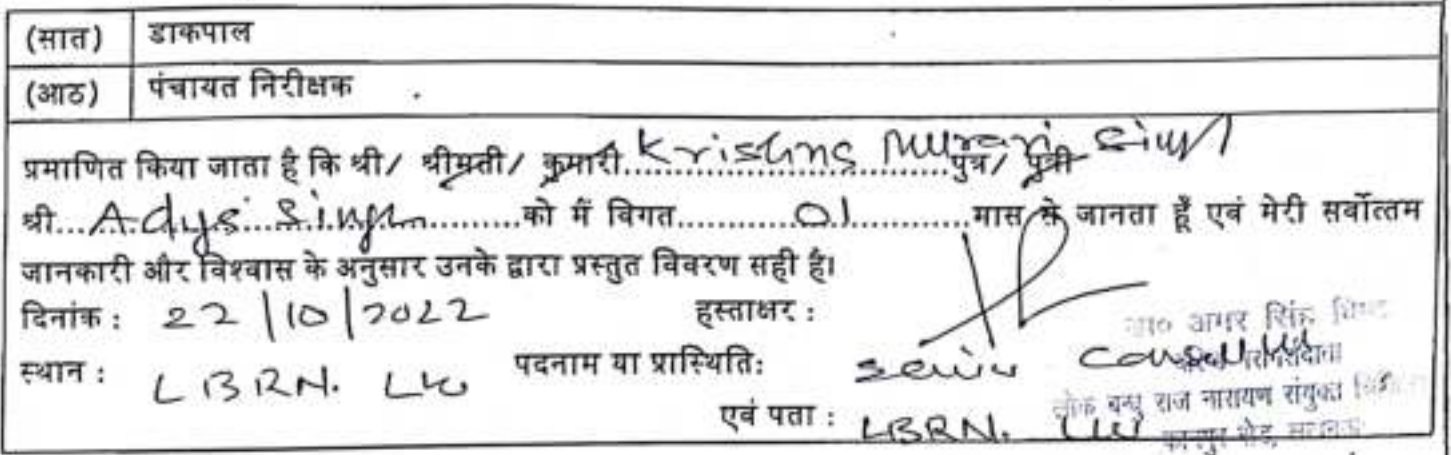 (सात) डाकपाल
(आठ) पंचायत निरीक्षक
प्रमाणित किया जाता है कि श्री/ श्रीमती/ कुमारी....Krishna Murari Singh....पुत्र/ पुत्री
श्री....Adya Singh....को मैं विगत....01....मास से जानता हूँ एवं मेरी सर्वोत्तम
जानकारी और विश्वास के अनुसार उनके द्वारा प्रस्तुत विवरण सही है।
दिनांक : 22/10/2022 हस्ताक्षर :
डा० अमर सिंह
स्थान : LBRN. LKO पदनाम या प्रास्थिति: Senior Consultant
लोक बन्धु राज नारायण संयुक्त
एवं पता : LBRN. LKO
कानपुर रोड, लखनऊ